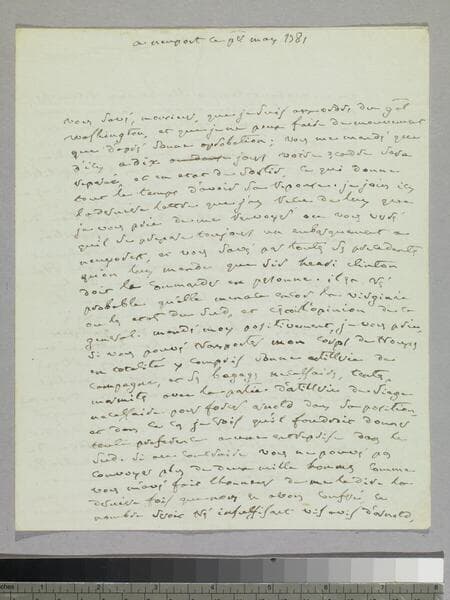 a newport ce 1er may 1781
vous savés, monsieur, que je suis aux ordres du gal
Washington, et que je ne peux faire de mouvement
que d'après son approbation; vous me mandés que
d'icy a dix jours votre escadre sera
reparée, et en etat de sortir, ce qui donne
tout le temps d'avoir sa reponse. je joins icy
la derniere lettre que j'ay reçue de luy que
je vous prie de me renvoyer ou vous verrés
qu'il se prepare toujours un embarquement a
newyork, et vous savés par toutes les precedentes
qu'on luy mande que sir henri clinton
doit le commander en personne. il est tres
probable qu'elle menace encor la virginie
ou les etats du sud, et c'est l'opinion de ce
general. mandés moy positivement, je vous prie,
si vous pouvés transporter mon corps de troupes
en totalité y compris son artillerie de
campagne, et ses bagages necessaires, tentes,
marmites, avec la partie d'artillerie de siege
necessaire pour forcer arnold dans sa position
et dans ce cas je crois qu'il faudroit donner
toute preference a une entreprise dans le
sud. si au contraire vous ne pouvés pas
convoyer plus de deux mille hommes comme
vous m'avés fait l'honneur de me le dire la
derniere fois que nous en avons conferé ce
nombre seroit tres insuffisant vis avis d'arnold,
inches 1 2 3 4 5 6 7 8